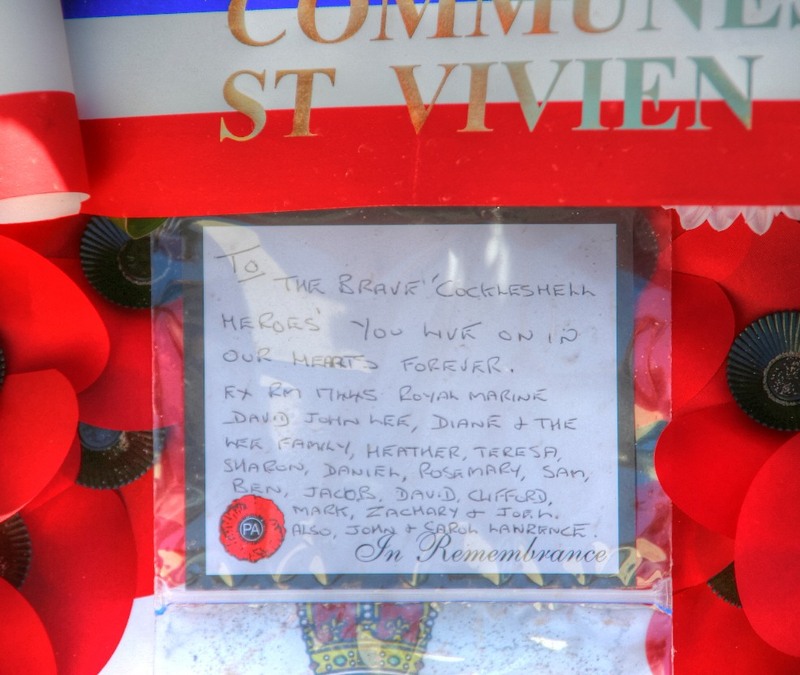 COMMUNES
ST VIVIEN
To
THE BRAVE "COCKLESHELL
HEROES" YOU LIVE ON IN
OUR HEARTS FOREVER.
EX RM ROYAL MARINE
DAVID JOHN LEE, DIANE & THE
LEE FAMILY, HEATHER, TERESA,
SHARON, DANIEL, ROSEMARY, SAM,
BEN, JACOB, DAVID, CLIFFORD,
MARK, ZACHARY &
ALSO, JOHN & CAROL LAWRENCE.
PA
In Remembrance